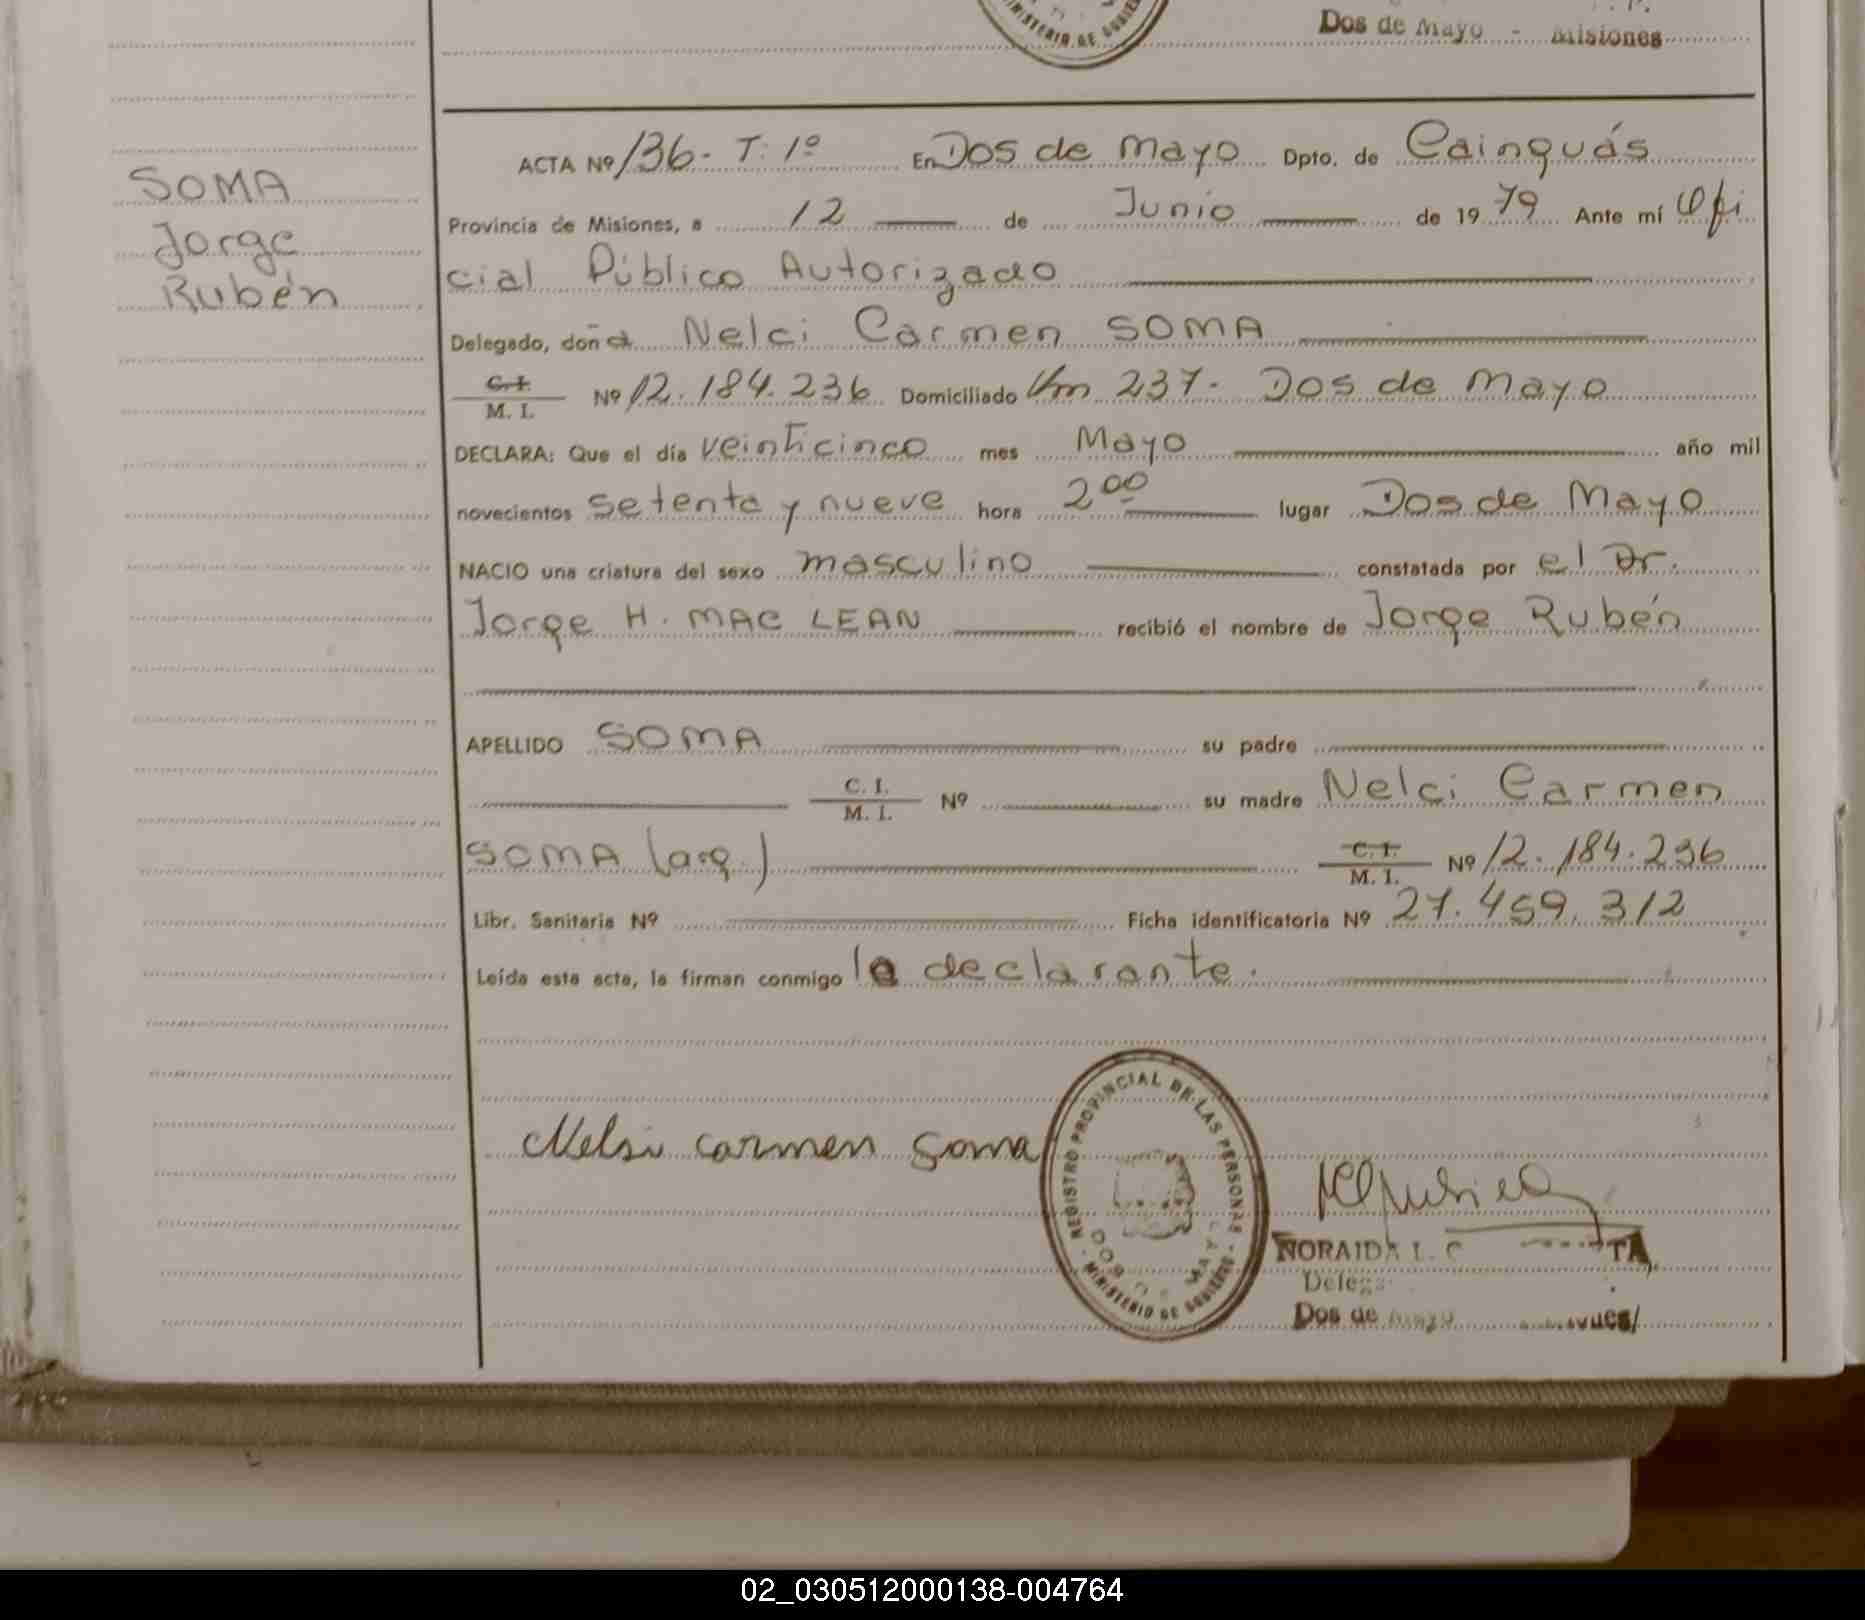 Dos de Mayo - Misiones
MINISTERIO DE GOBIERNO
SOMA
Jorge
Rubén
ACTA Nº 136- T: 1º En Dos de Mayo Dpto. de Cainguás
Provincia de Misiones, a 12 de Junio de 19 79 Ante mí Ofi
cial Público Autorizado
Delegado, doña Nelci Carmen SOMA
C. I.
M. I. Nº 12.184.236 Domiciliado Km 237- Dos de Mayo
DECLARA: Que el día veinticinco mes Mayo año mil
novecientos setenta y nueve hora 2 00 lugar Dos de Mayo
NACIO una criatura del sexo masculino constatada por el Dr.
Jorge H. MAC LEAN recibió el nombre de Jorge Rubén
APELLIDO SOMA su padre
C. I.
M. I. Nº su madre Nelci Carmen
SOMA (arg.) C. I.
M. I. Nº 12.184.236
Libr. Sanitaria Nº Ficha identificatoria Nº 27.459.312
Leída esta acta, la firman conmigo la declarante.
Nelsi Carmen Soma
REGISTRO PROVINCIAL DE LAS PERSONAS
MINISTERIO DE GOBIERNO
DOS DE MAYO
NORAIDA L. C
Dos de Mayo
02_030512000138-004764